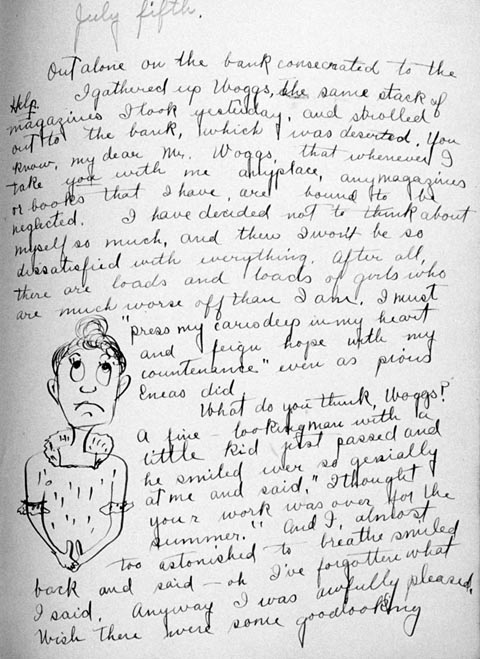 July fifth.
Out alone on the bank consecrated to the
Help. I gathered up Woggs, the same stack of
magazines I took yesterday, and strolled
out to the bank, which was deserted. You
know, my dear Mr. Woggs, that whenever I
take you with me anyplace, any magazines
or books that I have, are bound to be
neglected. I have decided not to think about
myself so much, and then I won't be so
dissatisfied with everything. After all,
there are loads and loads of girls who
are much worse off than I am. I must
"press my cares deep in my heart
and feign hope with my
countenance" even as pious
Eneas did.
What do you think, Woggs?
A fine-looking man with a
little kid just passed and
he smiled ever so genially
at me and said, "I thought
your work was over for the
summer." And I, almost
too astonished to breathe smiled
back and said — oh I've forgotten what
I said. Anyway I was awfully pleased.
Wish there were some goodlooking